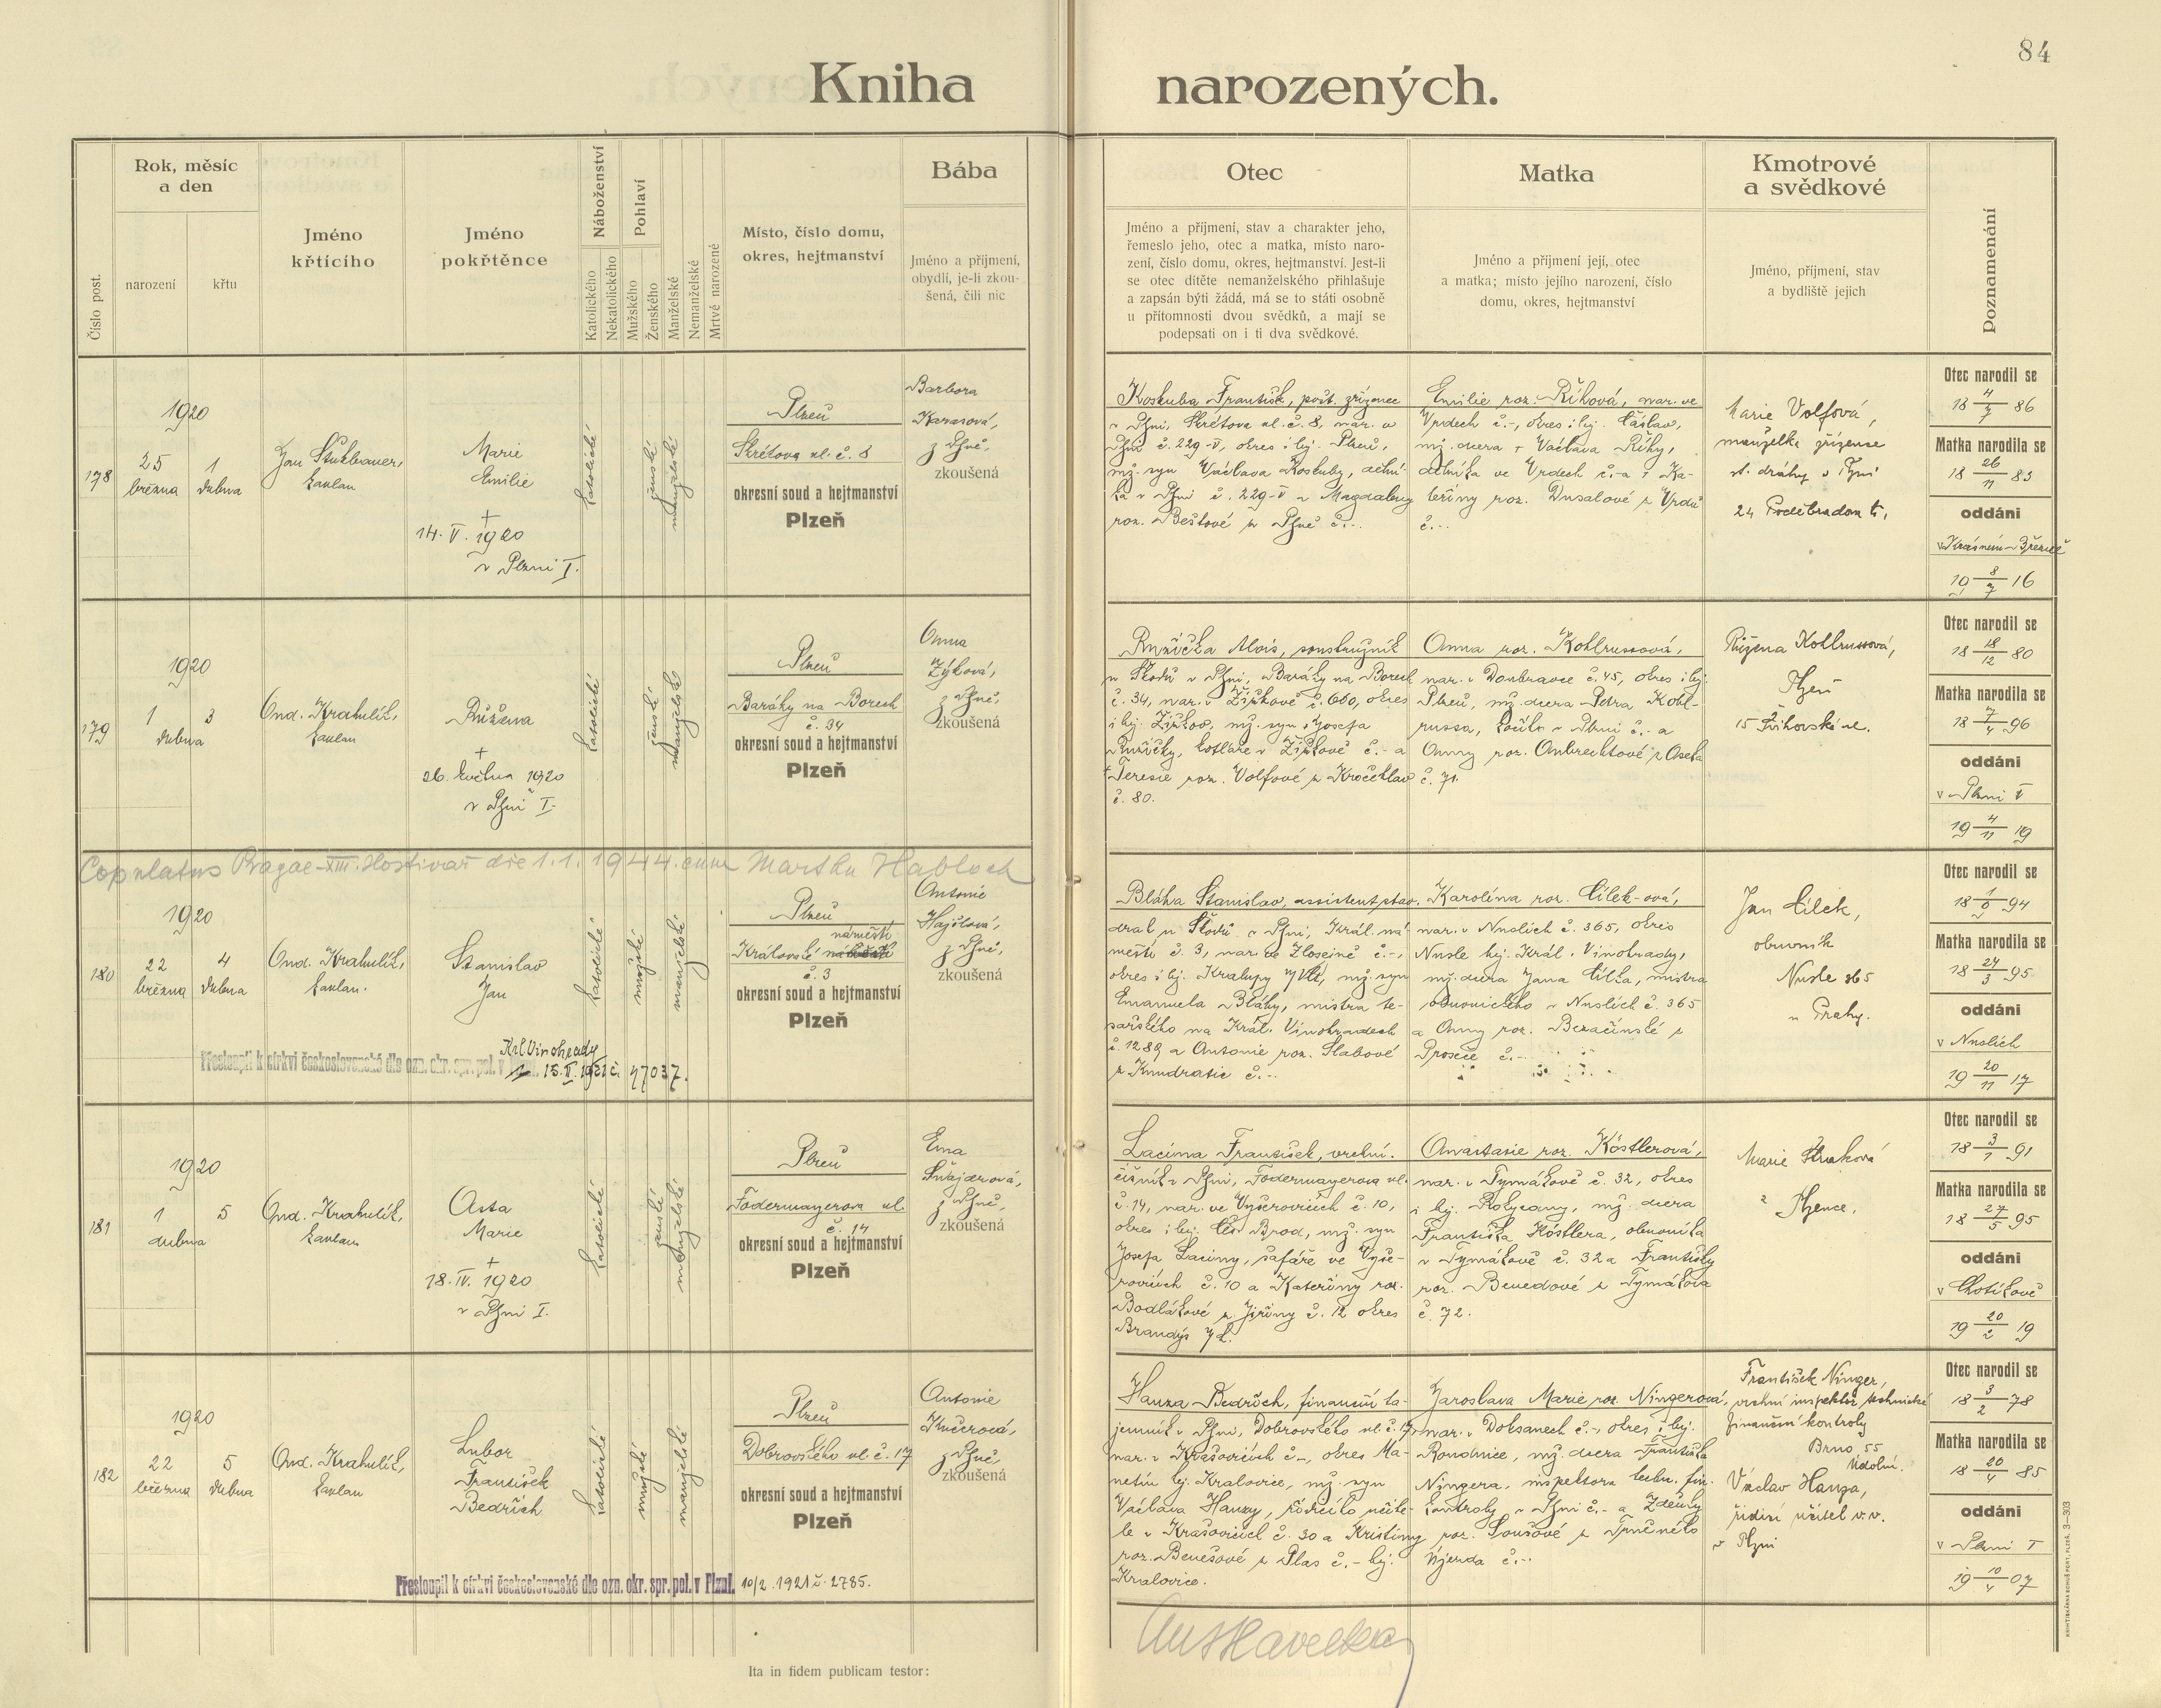 84
Kniha narozených.
Číslo post.
Rok, měsíc
a den
narození
křtu
Jméno
křtícího
Jméno
pokřtěnce
Náboženství
Katolického
Nekatolického
Pohlaví
Mužského
Ženského
Manželské
Nemanželské
Mrtvě narozené
Místo, číslo domu,
okres, hejtmanství
Bába
Jméno a příjmení,
obydlí, je-li zkou-
šená, čili nic
Otec
Jméno a příjmení, stav a charakter jeho,
řemeslo jeho, otec a matka, místo naro-
zení, číslo domu, okres, hejtmanství. Jest-li
se otec dítěte nemanželského přihlašuje
a zapsán býti žádá, má se to státi osobně
u přítomnosti dvou svědků, a mají se
podepsati on i ti dva svědkové.
Matka
Jméno a příjmení její, otec
a matka; místo jejího narození, číslo
domu, okres, hejtmanství
Kmotrové
a svědkové
Jméno, příjmení, stav
a bydliště jejich
Poznamenání
178
1920
25
března
1
dubna
kaplan
Marie
Emilie
+
14. V. 1920
v Plzni I.
katolické
ženské
manželské
Plzeň
Skrétova ul. č. 8
okresní soud a hejtmanství
Plzeň
Barbora
Karasová,
z Plzně,
zkoušená
Koskuba František, pošt. zřízenec
v Plzni, Skrétova ul. č. 8, nar. v
Plzni č. 229-V, okres i hej. Plzeň,
mž. syn Václava Koskuby, dělní-
ka v Plzni č. 229-V a Magdaleny
roz. Beštové z Plzně č.-.
Emilie roz. Říhová, nar. ve
Vrdech č.-, okres i hej. Čáslav,
mž. dcera + Václava Říhy,
dělníka ve Vrdech č.- a Ka-
teřiny roz. Dusalové z Vrdů
č.-.
Marie Volfová,
manželka zřízence
st. dráhy v Plzni
24 Poděbradova tř.
Otec narodil se
18 4/7 86
Matka narodila se
18 26/11 83
oddáni
v Krásném Březně
19 8/7 16
179
1920
1
dubna
3
Ond. Krahulík,
kaplan
Růžena
+
26. května 1920
v Plzni I.
katolické
ženské
manželské
Plzeň
Baráky na Borech
č. 34
okresní soud a hejtmanství
Plzeň
Anna
Zýková,
z Plzně,
zkoušená
Růžička Alois, soustružník
u Škodů v Plzni, Baráky na Borech
č. 34, nar. v Žižkově č. 660, okres
i hej. Žižkov, mž. syn Josefa
Růžičky, kotláře v Žižkově č.- a
+ Terezie roz. Volfové z Kročehlav
č. 80.
Anna roz. Kohlrussová,
nar. v Doubravce č. 45, okres i hej.
Plzeň, mž. dcera Petra Kohl-
russa, v Plzni č.- a
Anny roz. z Oseka
č. 71.
Růžena Kohlrussová,
Plzeň
15 Žižkovská ul.
Otec narodil se
18 18/12 80
Matka narodila se
18 7/4 96
oddáni
v Plzni V
19 4/11 19
Copulatus Pragae-XIII. Hostivař die 1.1.1944. cum Martha Habloch
180
1920
22
března
4
dubna
Ond. Krahulík,
kaplan.
Stanislav
Jan
katolické
mužské
manželské
Plzeň
náměstí
Královské
č. 3
okresní soud a hejtmanství
Plzeň
Antonie
Hajšlová,
z Plzně,
zkoušená
Krl Vinohrady
Přestoupil k církvi československé dle ozn. okr. spr. pol. v 15. II. 1921 č. 47037.
Bláha Stanislav, assistent stav.
drah u Škodů v Plzni, Král. ná-
městí č. 3, nar. ve Zlosejně č.-,
okres i hej. Kralupy n/Vlt., mž. syn
Emanuela Bláhy, mistra te-
sařského na Král. Vinohradech
č. 1289 a Antonie roz. Slabové
z Kundratic č.-.
Karolína roz. Cílek-ová,
nar. v Nuslích č. 365, okres
Nusle hej. Král. Vinohrady,
mž. dcera Jana Cílka, mistra
obuvnického v Nuslích č. 365
a Anny roz. z
Proseče č.-.
Jan Cílek,
obuvník
Nusle 365
u Prahy.
Otec narodil se
18 1/6 94
Matka narodila se
18 24/3 95
oddáni
v Nuslích
19 20/11 17
181
1920
1
dubna
5
Ond. Krahulík,
kaplan
Asta
Marie
+
18. IV. 1920
v Plzni I.
katolické
ženské
manželské
Plzeň
Fodermayerova ul.
č. 14
okresní soud a hejtmanství
Plzeň
Ema
Šnajdrová,
z Plzně,
zkoušená
Lacina František, vrchní.
číšník v Plzni, Fodermayerova ul.
č. 14, nar. ve Vyšerovicích č. 10,
okres i hej. Čes. Brod, mž. syn
Josefa Laciny, šafáře ve Vyše-
rovicích č. 10 a Kateřiny roz.
Bodlákové z Jiřiny č. 12 okres
Brandýs n/L.
Anastasie roz. Köstlerová,
nar. v Tymákově č. 32, okres
i hej. Rokycany, mž. dcera
Františka Köstlera, obuvníka
v Tymákově č. 32 a Františky
roz. Benedové z Tymákova
č. 72.
Marie Straková
z Plzence.
Otec narodil se
18 3/1 91
Matka narodila se
18 27/5 95
oddáni
v Chotíkově
19 20/2 19
182
1920
22
března
5
dubna
Ond. Krahulík,
kaplan
Lubor
František
Bedřich
katolické
mužské
manželské
Plzeň
Dobrovského ul. č. 17
okresní soud a hejtmanství
Plzeň
Antonie
Kučerová,
z Plzně,
zkoušená
Přestoupil k církvi československé dle ozn. okr. spr. pol. v Plzni. 10/2. 1921 č. 2785.
Hanza Bedřich, finanční ta-
jemník v Plzni, Dobrovského ul. č. 17,
nar. v Krašovicích č.-, okres Ma-
netín hej. Kralovice, mž. syn
Václava Hanzy, řídícího učite-
le v Krašovicích č. 30 a Kristiny
roz. Benešové z Plas č.- hej.
Kralovice.
Jaroslava Marie roz. Ningerová,
nar. v Doksanech č.-, okres i hej.
Roudnice, mž. dcera Františka
Ningera, inspektora techn. fin.
kontroly v Plzni č.- a Zdeňky
roz. Soušové z
Újezda č.-.
František Ninger,
vrchní inspektor technické
finanční kontroly
Brno, 55
Údolní.
Václav Hanza,
řídící učitel v.v.
v Plzni
Otec narodil se
18 3/2 78
Matka narodila se
18 20/4 85
oddáni
v Plzni I
19 10/4 07
Ita in fidem publicam testor:
KNIHTISKÁRNA BOHUŠ PORT, PLZEŇ. 3—303